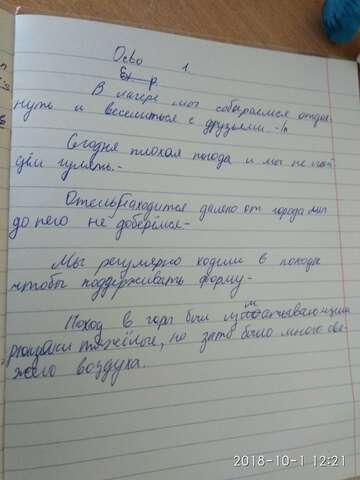 1.
Ex p.
В лагере мы собираемся отдох
нуть и веселиться с друзьями.-
Сегодня плохая погода и мы не пой
дём гулять.-
Отель находится далеко от города мы
до него не доберёмся-
Мы регулярно ходим в походы
чтобы поддерживать форму-
Поход в горы были изматывающим
рюкзаки тяжёлые, но зато было много све
жего воздуха.
2018-10-1 12:21